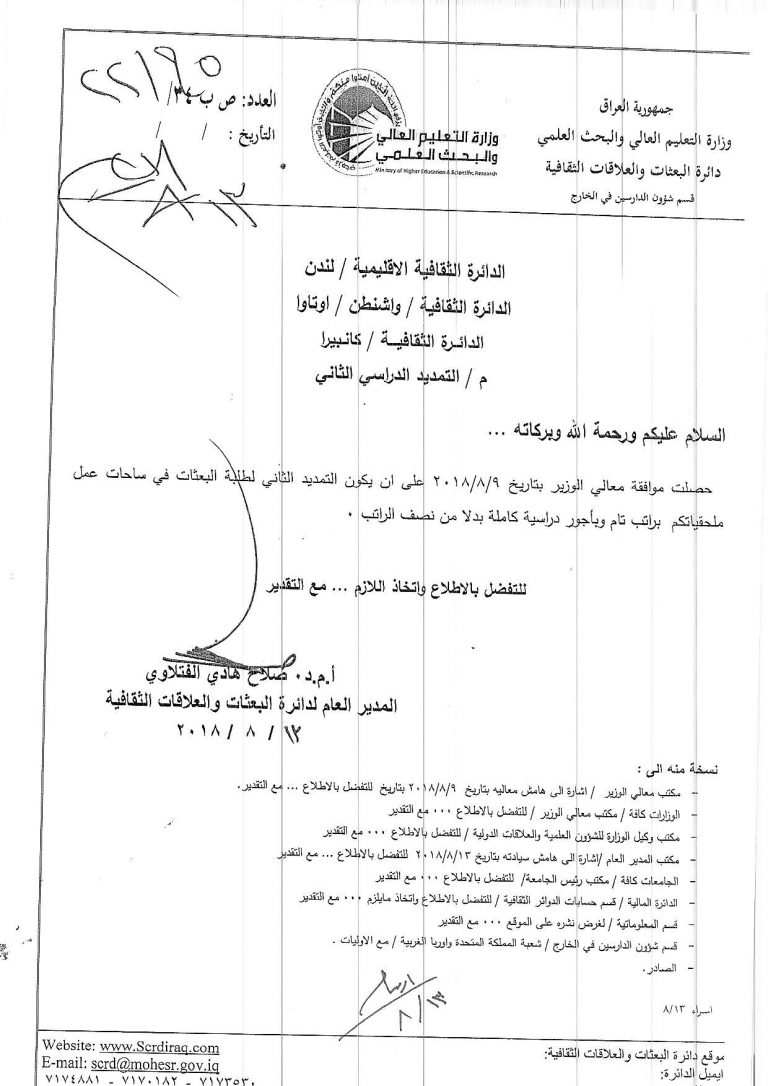 جمهورية العراق
وزارة التعليم العالي والبحث العلمي
دائرة البعثات والعلاقات الثقافية
قسم شؤون الدارسين في الخارج
وزارة التعليم العالي
والبحث العلمي
Ministry of Higher Education & Scientific Research
العدد: ص ب ٣٤/ ٢٢١٩٥
التأريخ : / /
٨/١٣
الدائرة الثقافية الاقليمية / لندن
الدائرة الثقافية / واشنطن / اوتاوا
الدائرة الثقافيــة / كانبيرا
م / التمديد الدراسي الثاني
السلام عليكم ورحمة الله وبركاته ...
حصلت موافقة معالي الوزير بتاريخ ٢٠١٨/٨/٩ على ان يكون التمديد الثاني لطلبة البعثات في ساحات عمل
ملحقياتكم براتب تام وبأجور دراسية كاملة بدلا من نصف الراتب ٠
للتفضل بالاطلاع واتخاذ اللازم ... مع التقدير
أ.م.د٠ صلاح هادي الفتلاوي
المدير العام لدائرة البعثات والعلاقات الثقافية
١٣ / ٨ / ٢٠١٨
نسخة منه الى :
- مكتب معالي الوزير / اشارة الى هامش معاليه بتاريخ ٢٠١٨/٨/٩ بتاريخ للتفضل بالاطلاع ... مع التقدير.
- الوزارات كافة / مكتب معالي الوزير / للتفضل بالاطلاع ٠٠٠ مع التقدير
- مكتب وكيل الوزارة للشؤون العلمية والعلاقات الدولية / للتفضل بالاطلاع ٠٠٠ مع التقدير
- مكتب المدير العام /اشارة الى هامش سيادته بتاريخ ٢٠١٨/٨/١٣ للتفضل بالاطلاع ... مع التقدير
- الجامعات كافة / مكتب رئيس الجامعة/ للتفضل بالاطلاع ٠٠٠ مع التقدير
- الدائرة المالية / قسم حسابات الدوائر الثقافية / للتفضل بالاطلاع واتخاذ مايلزم ٠٠٠ مع التقدير
- قسم المعلوماتية / لغرض نشره على الموقع ٠٠٠ مع التقدير
- قسم شؤون الدارسين في الخارج / شعبة المملكة المتحدة واوربا الغربية / مع الاوليات .
- الصادر.
اسراء ٨/١٣
٨/١٣
موقع دائرة البعثات والعلاقات الثقافية:
Website: www.Scrdiraq.com
ايميل الدائرة:
E-mail: scrd@mohesr.gov.iq
٧١٧٤٨٨١ - ٧١٧٠١٨٢ - ٧١٧٣٥٣٠